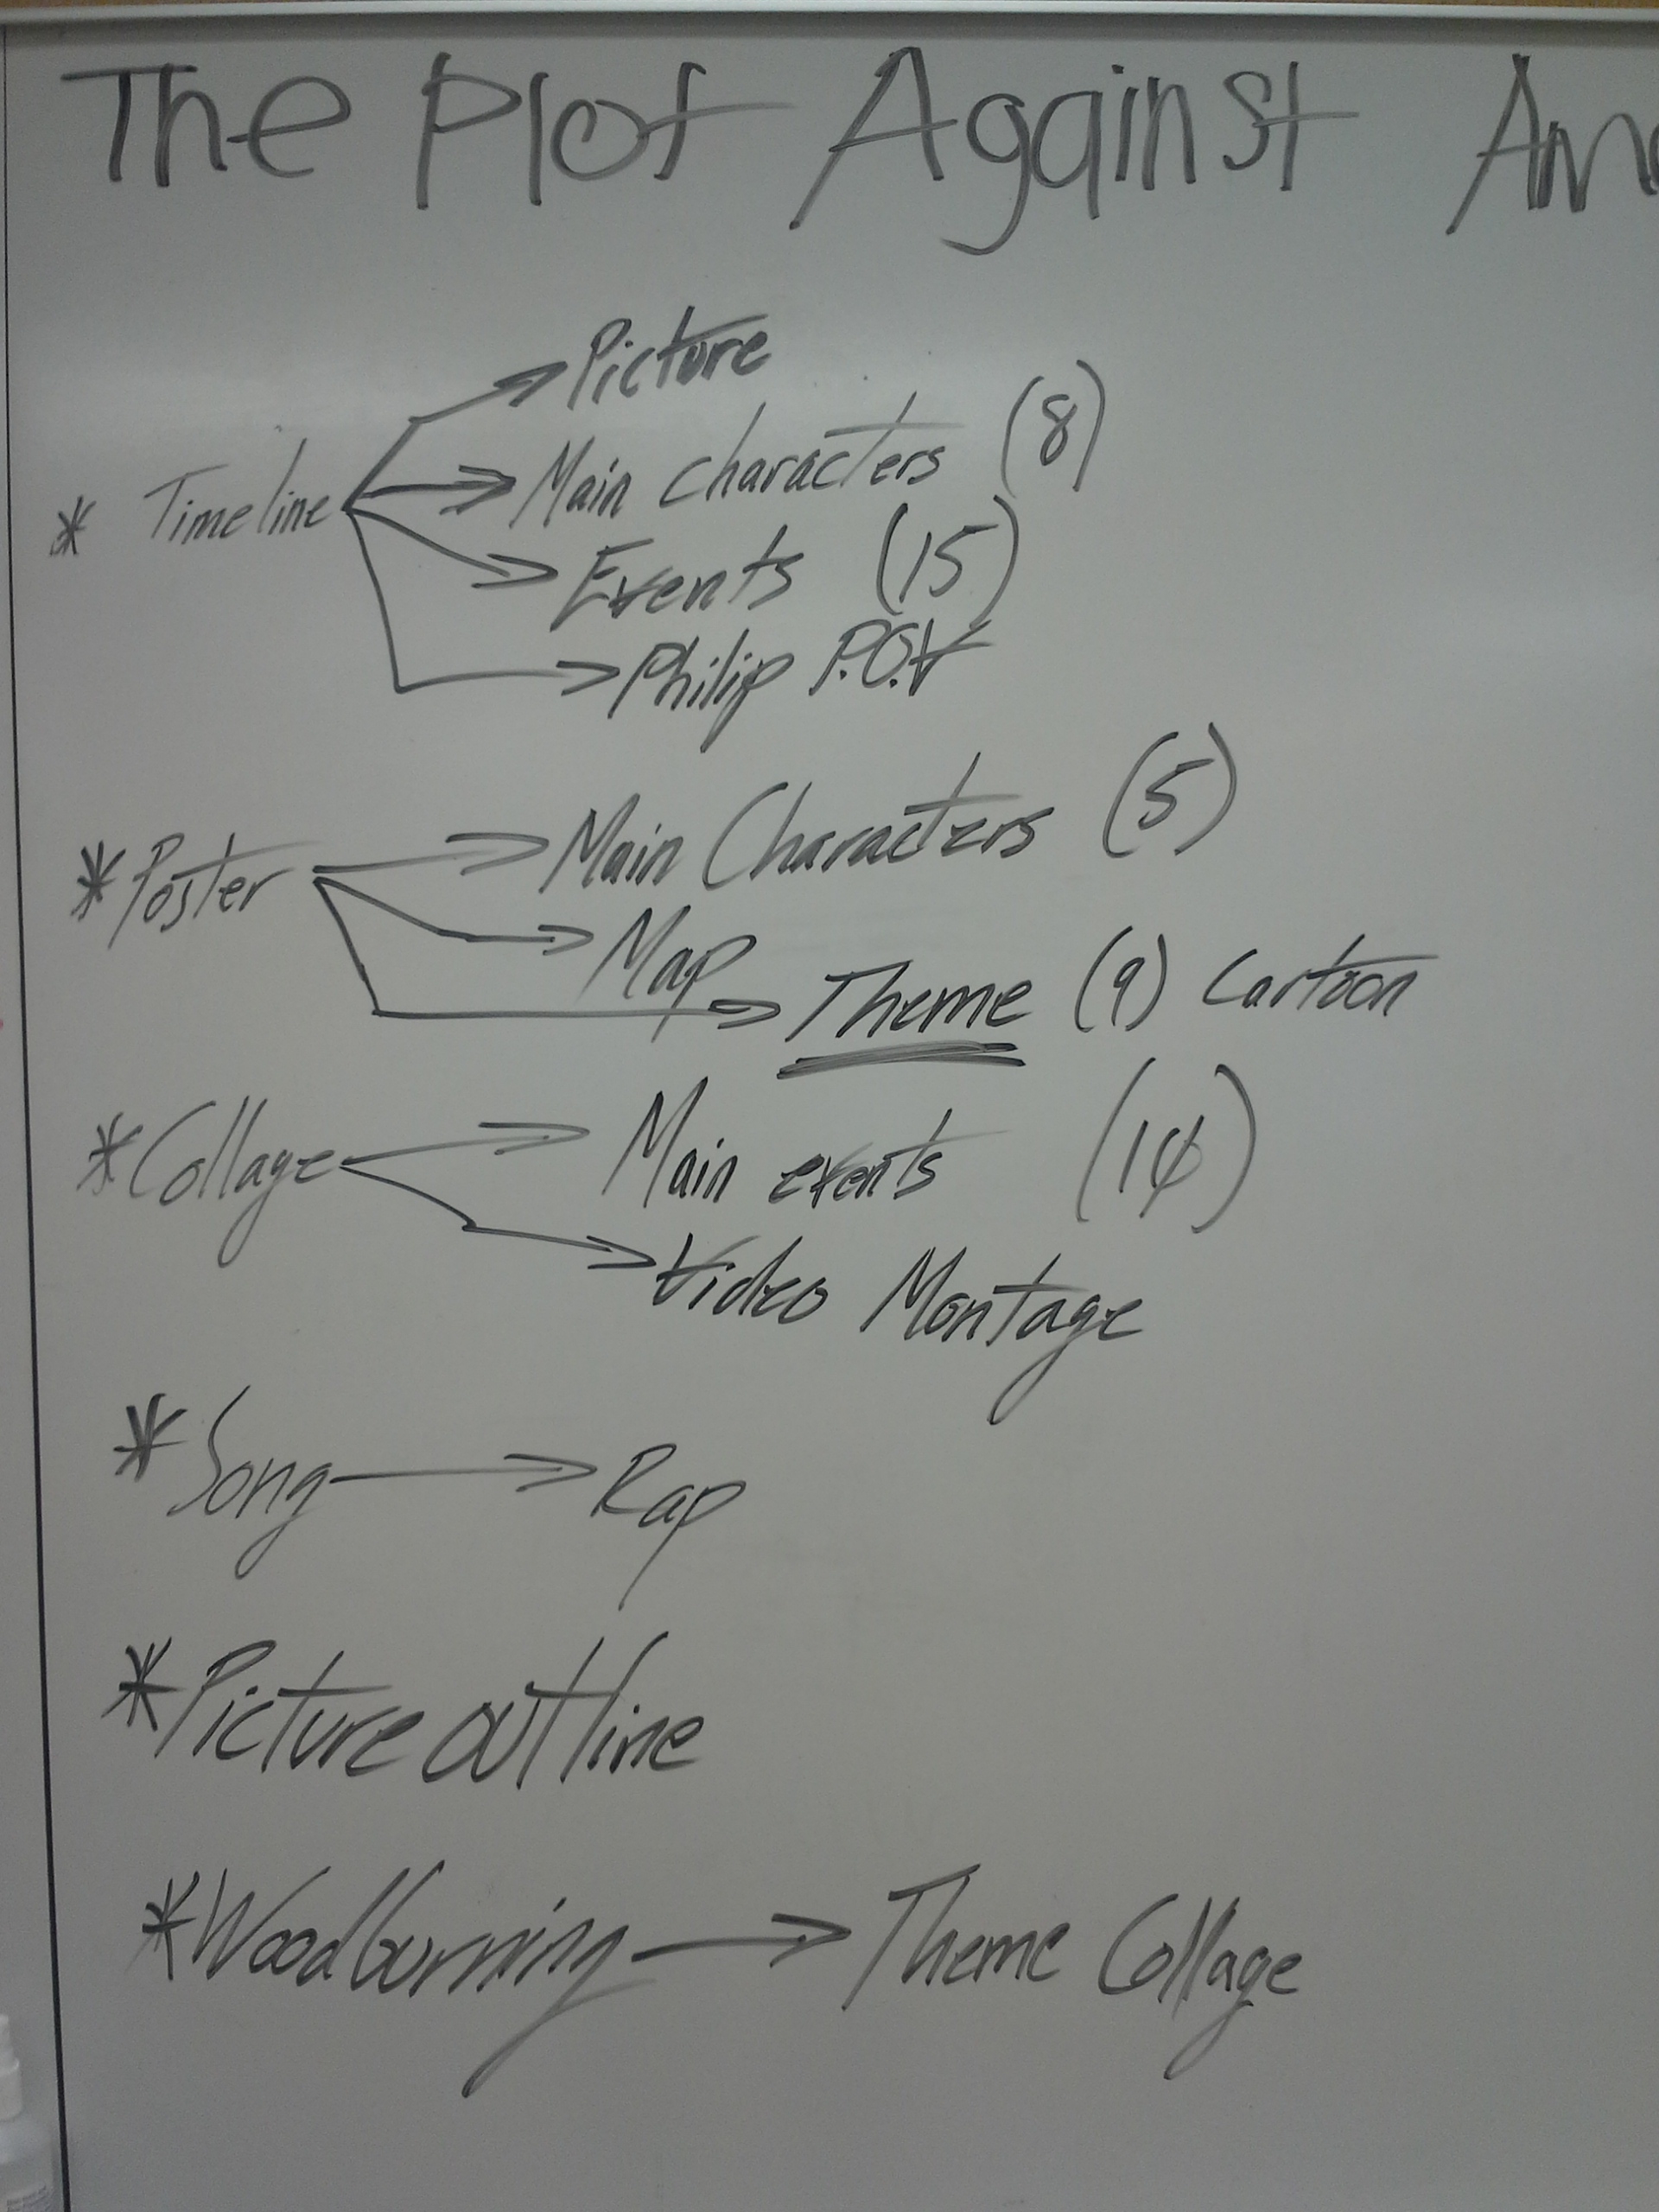 The Plot Against Am
Picture
Main characters (8)
* Timeline
Events (15)
Philip P.O.V
Main Characters (5)
* Poster
Map
Theme (9) Cartoon
Main events
* Collage
Video Montage
* Song → Rap
* Picture outline
* Woodburning → Theme Collage